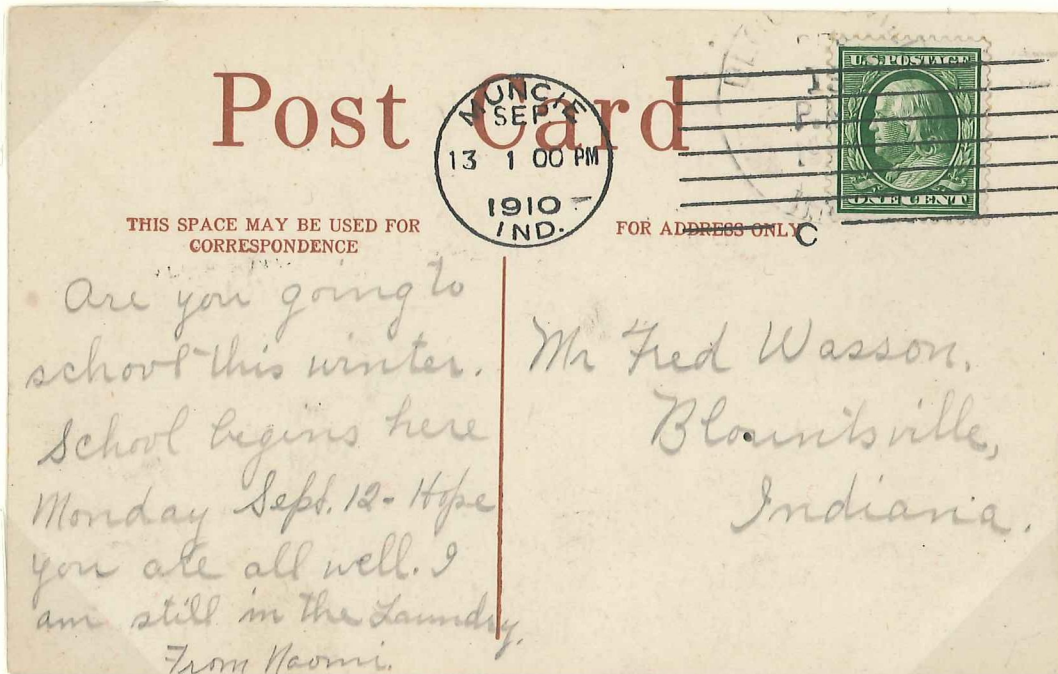 Post Card
MUNCIE
SEP
13 1 00 PM
1910
IND.
U.S. POSTAGE
ONE CENT
THIS SPACE MAY BE USED FOR
CORRESPONDENCE
FOR ADDRESS ONLY
C
Are you going to
school this winter.
School begins here
Monday Sept. 12 - Hope
you are all well. I
am still in the Laundry.
From Naomi.
Mr Fred Wasson,
Blountsville,
Indiana.